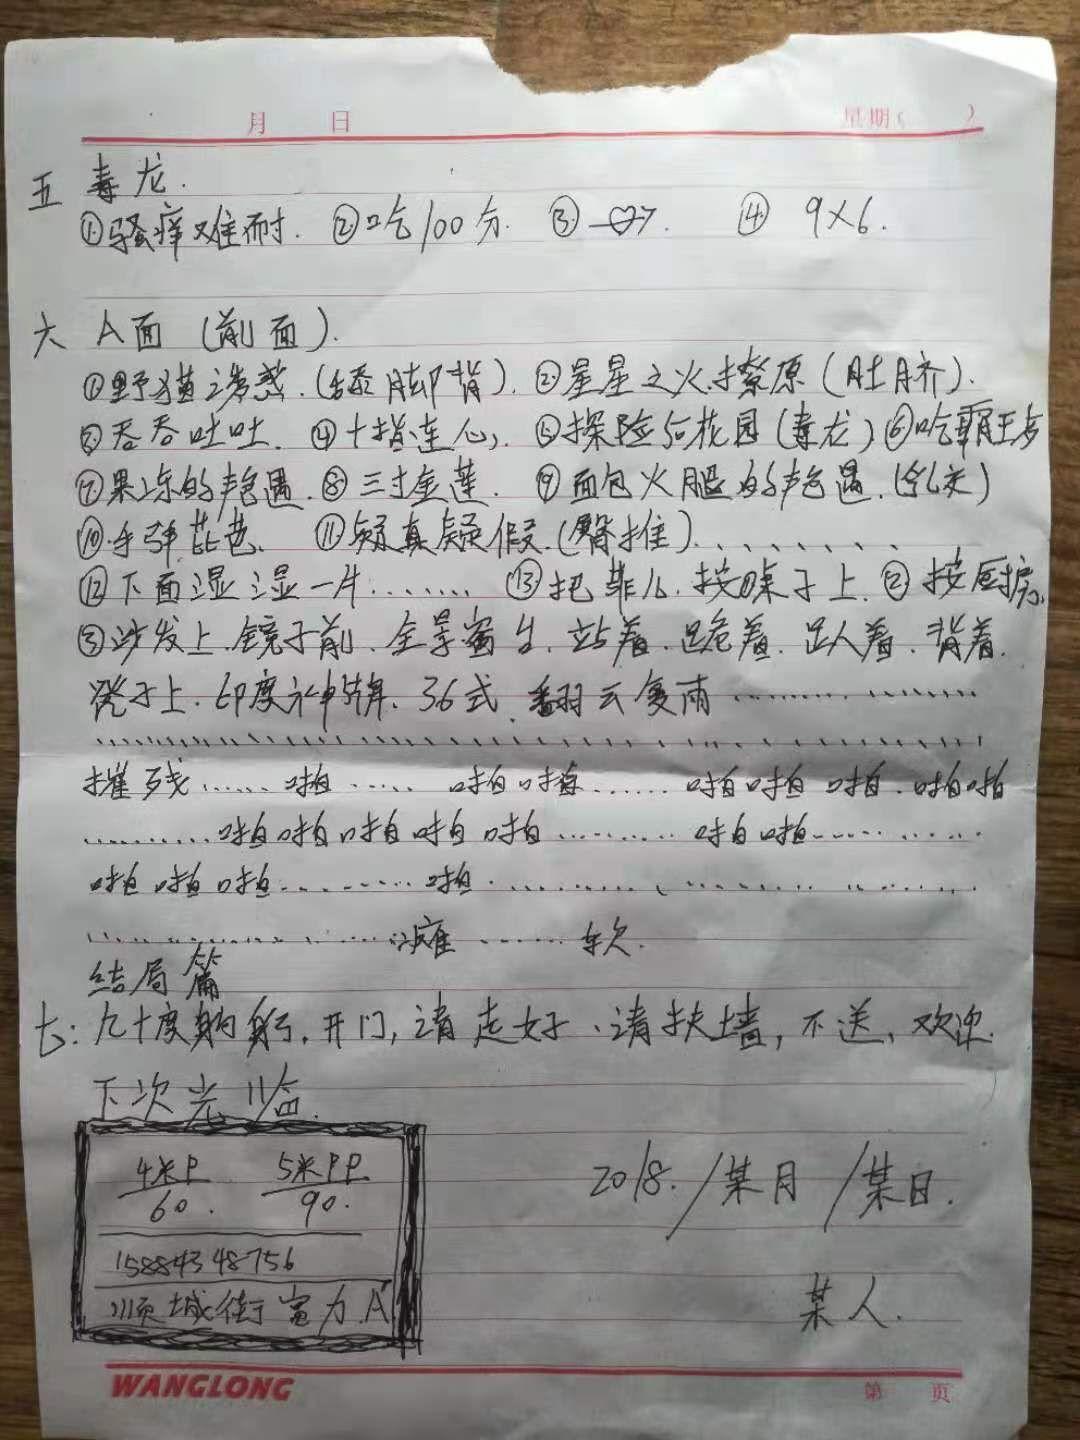 月 日 星期( )
五 毒龙.
①骚痒难耐. ②吃100分. ③ ④ 9×6.
六 A面 (前面).
①野猫诱惑.(舔脚背). ②星星之火.撩原(肚脐).
③吞吞吐吐. ④十指连心, ⑤探险后花园(毒龙) ⑥吃霸王
⑦果冻的艳遇. ⑧三寸金莲. ⑨面包火腿的艳遇.(乳交)
⑩手弹芘芭. ⑪疑真疑假.(臀推).、、、、、、
⑫下面湿湿一片....... ⑬把菲儿.按桌子上. ② 按厨房.
③沙发上.镜子前.全景窗台.站着.跪着.趴着.背着.
凳子上.印度神牌.36式.翻云复雨..............
摧残...... 啪..... 啪啪...... 啪啪啪.啪啪
............啪啪啪啪啪........... 啪啪..............
啪啪啪...........啪...........................
.....................瘫.......软.
结局篇
七: 九十度鞠躬.开门,请走好、请扶墙,不送,欢迎.
下次光临.
4米P 5米PP
60. 90.
15884348756
顺城街富力A
2018./某月/某日.
某人.
WANGLONG 第 页